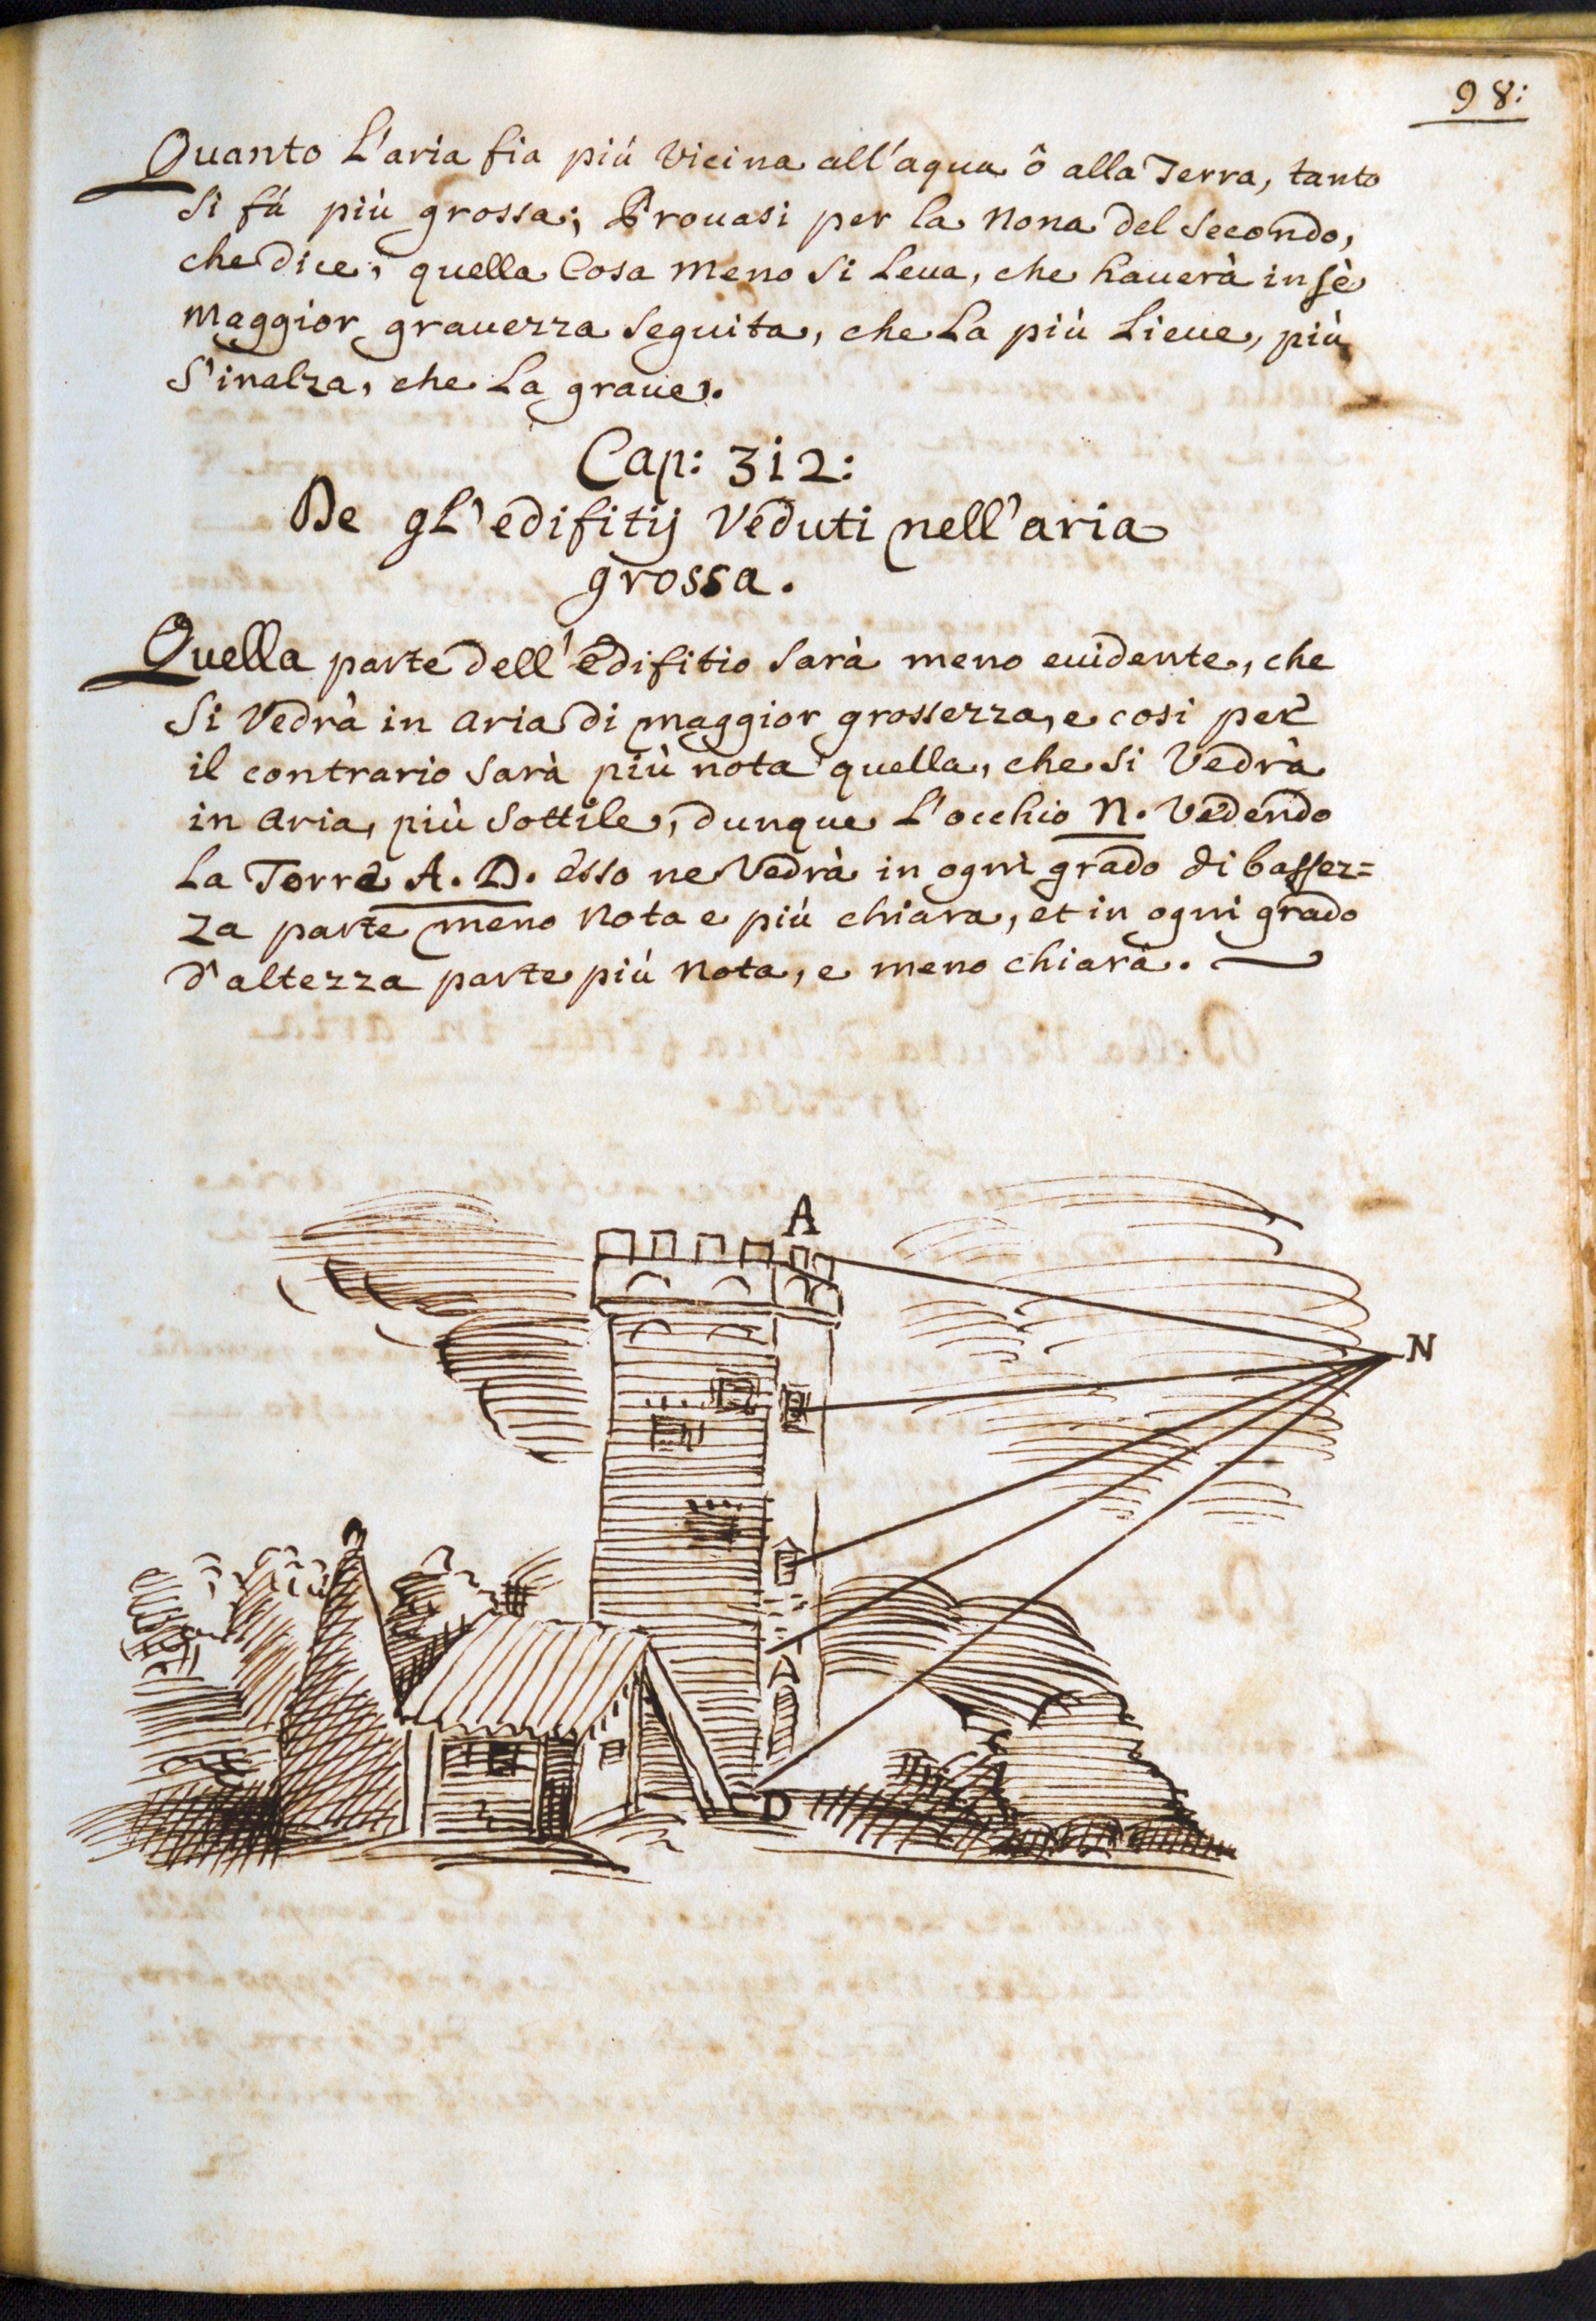 98:
Quanto L'aria fia più Vicina all'aqua ò alla Terra, tanto
Si fà più grossa; Prouasi per la Nona del Secondo,
che dice, quella Cosa Meno Si Leua, che hauerà in sè
Maggior grauezza Seguita, che La più Lieue, più
S'inalza, che La graue.
Cap: 312:
De gL'edifitij Veduti nell'aria
grossa.
Quella parte dell'Edifitio Sarà meno euidente, che
Si Vedrà in aria di maggior grossezza, e cosi per
il contrario Sarà più nota quella, che Si Vedrà
in aria, più Sottile, dunque L'occhio N. Vedendo
La Torre A. D. esso ne Vedrà in ogni grado di bassez=
za parte meno Nota e più chiara, et in ogni grado
d'altezza parte più Nota, e meno chiara.
A
N
D